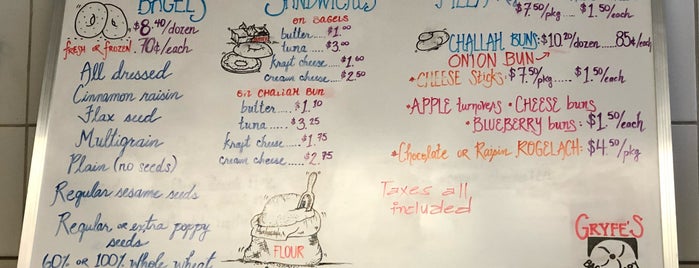 BAGELS
$8.40/dozen
FRESH OR FROZEN. 70¢/each
All dressed
Cinnamon raisin
Flax seed
Multigrain
Plain (no seeds)
Regular sesame seeds
Regular, or extra poppy
seeds
60% or 100% whole wheat
SANDWICHES
on BAGELS
butter.....$1.00
tuna.....$3.00
kraft cheese....$1.60
cream cheese...$2.50
on CHALLAH BUN
butter......$1.10
tuna.......$3.25
kraft cheese.....$1.75
cream cheese....$2.75
FLOUR
$7.50/pkg . $1.50/each
CHALLAH BUNS: $10.20/dozen.....85¢/each
ONION BUN
•CHEESE Sticks: $7.50/pkg.......$1.50/each
•APPLE turnovers • CHEESE buns
•BLUEBERRY buns: $1.50/each
•Chocolate or Raisin ROGELACH: $4.50/pkg
Taxes all
included
GRYFE'S